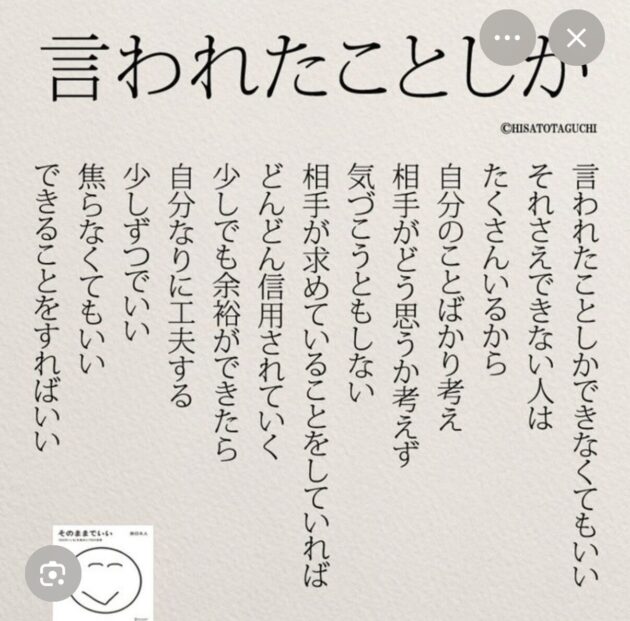 言われたことしか
©HISATOTAGUCHI
言われたことしかできなくてもいい
それさえできない人は
たくさんいるから
自分のことばかり考え
相手がどう思うか考えず
気づこうともしない
相手が求めていることをしていれば
どんどん信用されていく
少しでも余裕ができたら
自分なりに工夫する
少しずつでいい
焦らなくてもいい
できることをすればいい
そのままでいい